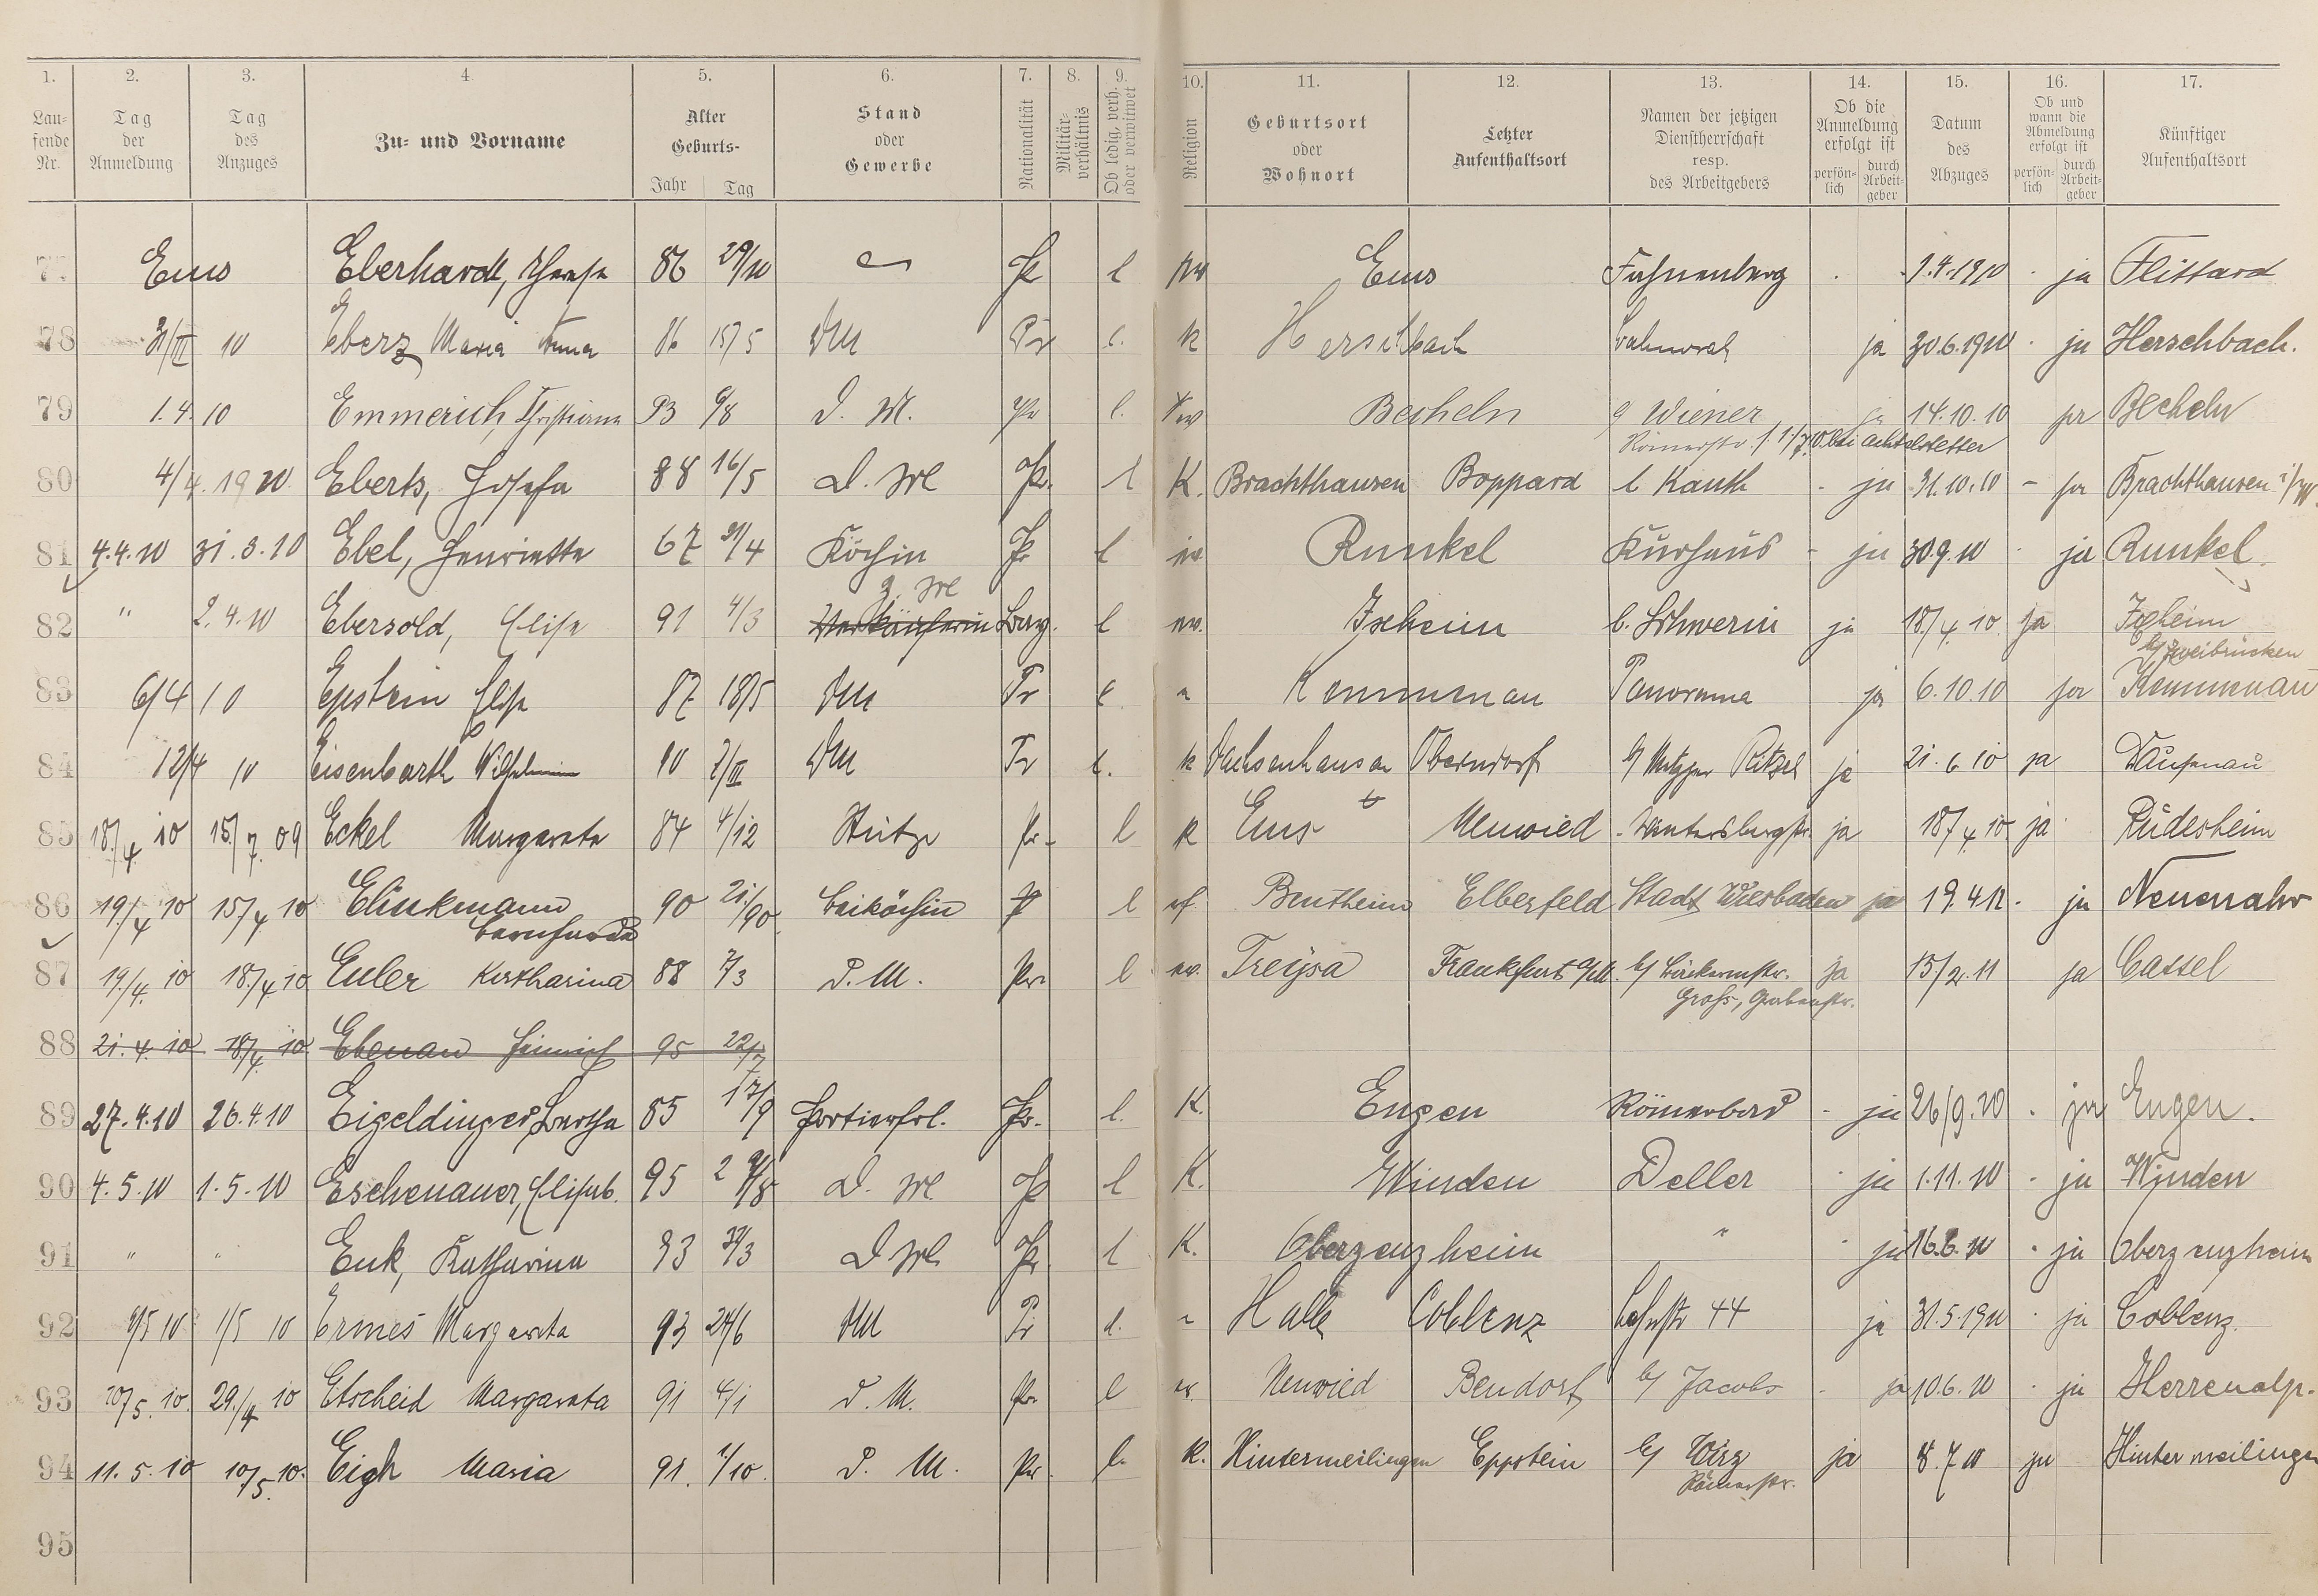 1. 2. 3. 4. 5. 6. 7. 8. 9. 10. 11. 12. 13. 14. 15. 16. 17.
Laufende Nr.
Tag der Anmeldung
Tag des Anzuges
Zu- und Vorname
Alter Geburts- Jahr Tag
Stand oder Gewerbe
Nationalität
Militärverhältnis
Ob ledig, verh. oder verwitwet
Religion
Geburtsort oder Wohnort
Letzter Aufenthaltsort
Namen der jetzigen Dienstherrschaft resp. des Arbeitgebers
Ob die Anmeldung erfolgt ist persönlich durch Arbeitgeber
Datum des Abzuges
Ob und wann die Abmeldung erfolgt ist persönlich durch Arbeitgeber
Künftiger Aufenthaltsort
77 Ems Eberhardt, 86 29/10 Pr l Ems 1.4.1910 ja Flittard
78 10 Eberz Maria Anna 86 15/5 DM Pr l. K Herschbach ja 30.6.1910 ja Herschbach.
79 1.4.10 Emmerich, Christiana 93 6/8 D. M. Pr l. Becheln Wiener ja 14.10.10 ja Becheln
Römerstr. 1/7.10. bei Achtelstetter
80 4/4.1910 Eberts, Josefa 88 16/5 D. M Pr. l K. Brachthausen Boppard b Kauth - ja 31.10.10 - ja Brachthausen i/W.
81 4.4.10 31.3.10 Ebel, Henriette 67 Köchin Pr l Runkel Kurhaus - ja 30.9.10 ja Runkel.
82 " 2.4.10 Ebersold, Elise 91 4/3 Verkäuferin Z. M Bay. l ev. Ixheim b. Schwerin ja 18/4.10 ja Ixheim
b/Zweibrücken
83 6/4 10 Epstein Elise 87 18/5 DM Pr l. " Kemmenau Panorama ja 6.10.10 ja Kemmenau
84 12/4 10 Eisenbarth Wilhelmine 90 2/III DM Pr l. K Dachsenhausen Oberndorf b/ Metzger Ritzel ja 21.6.10 ja Dausenau
85 18./4 10 15/7.09 Eckel Margareta 84 4/12 Stütze Pr. l K Ems Neuwied Wintersbergstr. ja 18/4.10. ja Rüdesheim
86 19./4 10 15/4 10 Elinkmann 90 21./90. Beiköchin P l rf. Bentheim Elberfeld Stadt Wiesbaden ja 19.4.12. ja Neuenahr
Bernharda
87 19./4. 10 18./4 10 Euler Katharina 88 7/3 D. M. Pr. l ev. Treysa Frankfurt a/M. b/ Bäckermstr. ja 15/2.11 ja Cassel
Groß, Grabenstr.
88 21.4.10 18/4. 10 Ebenau Heinrich 95 22/7
89 27.4.10 26.4.10 Eigeldinger, Bertha 85 17/9 Portierfrl. Pr. l. K. Engen Römerbad - ja 26/9.10 ja Engen.
90 4.5.10 1.5.10 Eschenauer, Elisab. 95 D. M Pr l K. Winden Deller ja 1.11.10 ja Winden
91 " " Euk, Katharina 93 D M Pr l K. Oberzeuzheim " ja 16.6.10 ja Oberzeuzheim
92 9/5 10 1/5 10 Ermes Margareta 93 24/6 DM Pr l. " Halle Coblenz Lahnstr 44 ja 31.5.1910 ja Coblenz.
93 10/5. 10. 29./4 10 Etscheid Margareta 91 4/1 D. M. Pr. l ev. Neuwied Bendorf b/ Jacobs - ja 10.6.10 ja Herrenalp.
94 11.5.10 10/5.10. Eigh Maria 91. 1/10. D. M. Pr. l. K. Hintermeilingen Eppstein b/ Wirz ja 8.7.10 ja Hintermeilingen
Römerstr.
95